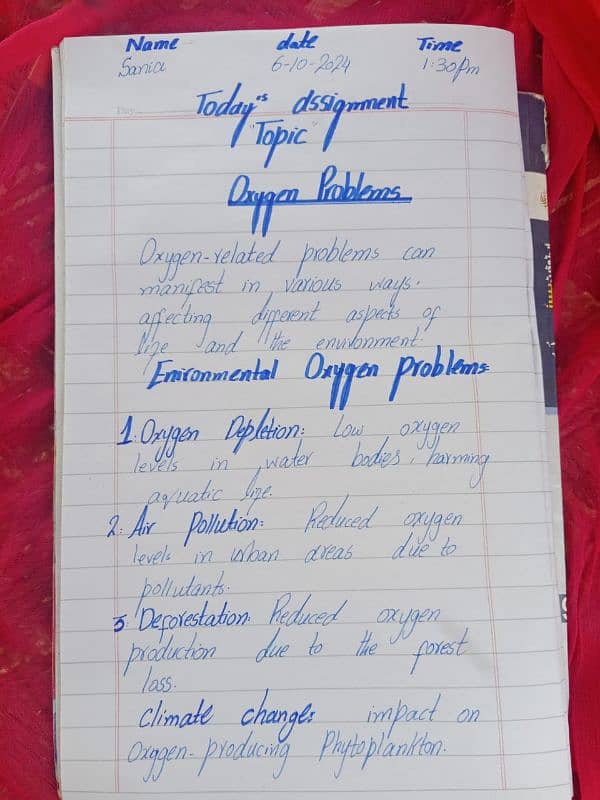 Name date Time
Sania 6-10-2024 1:30pm
Today's Assignment
"Topic"
Oxygen Problems
Oxygen-related problems can
manifest in various ways.
affecting different aspects of
life and the environment.
Enironmental Oxygen problems:
1. Oxygen Depletion: Low oxygen
levels in water bodies, harming
aquatic life.
2. Air pollution: Reduced oxygen
levels in urban areas due to
pollutants.
3. Deforestation: Reduced oxygen
production due to the forest
loss.
Climate change: impact on
Oxygen-producing Phytoplankton.